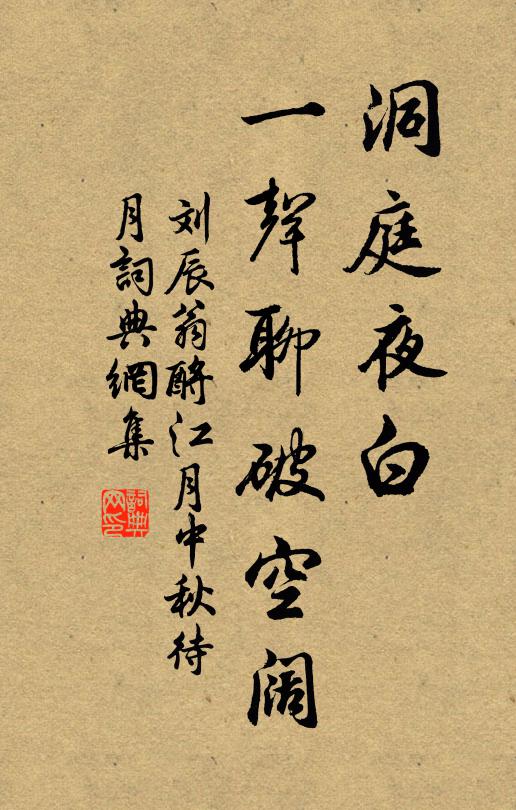 洞庭夜白
一聲聊破空阔
刘辰翁酹江月中秋待
月詞典網集
詞典
网印